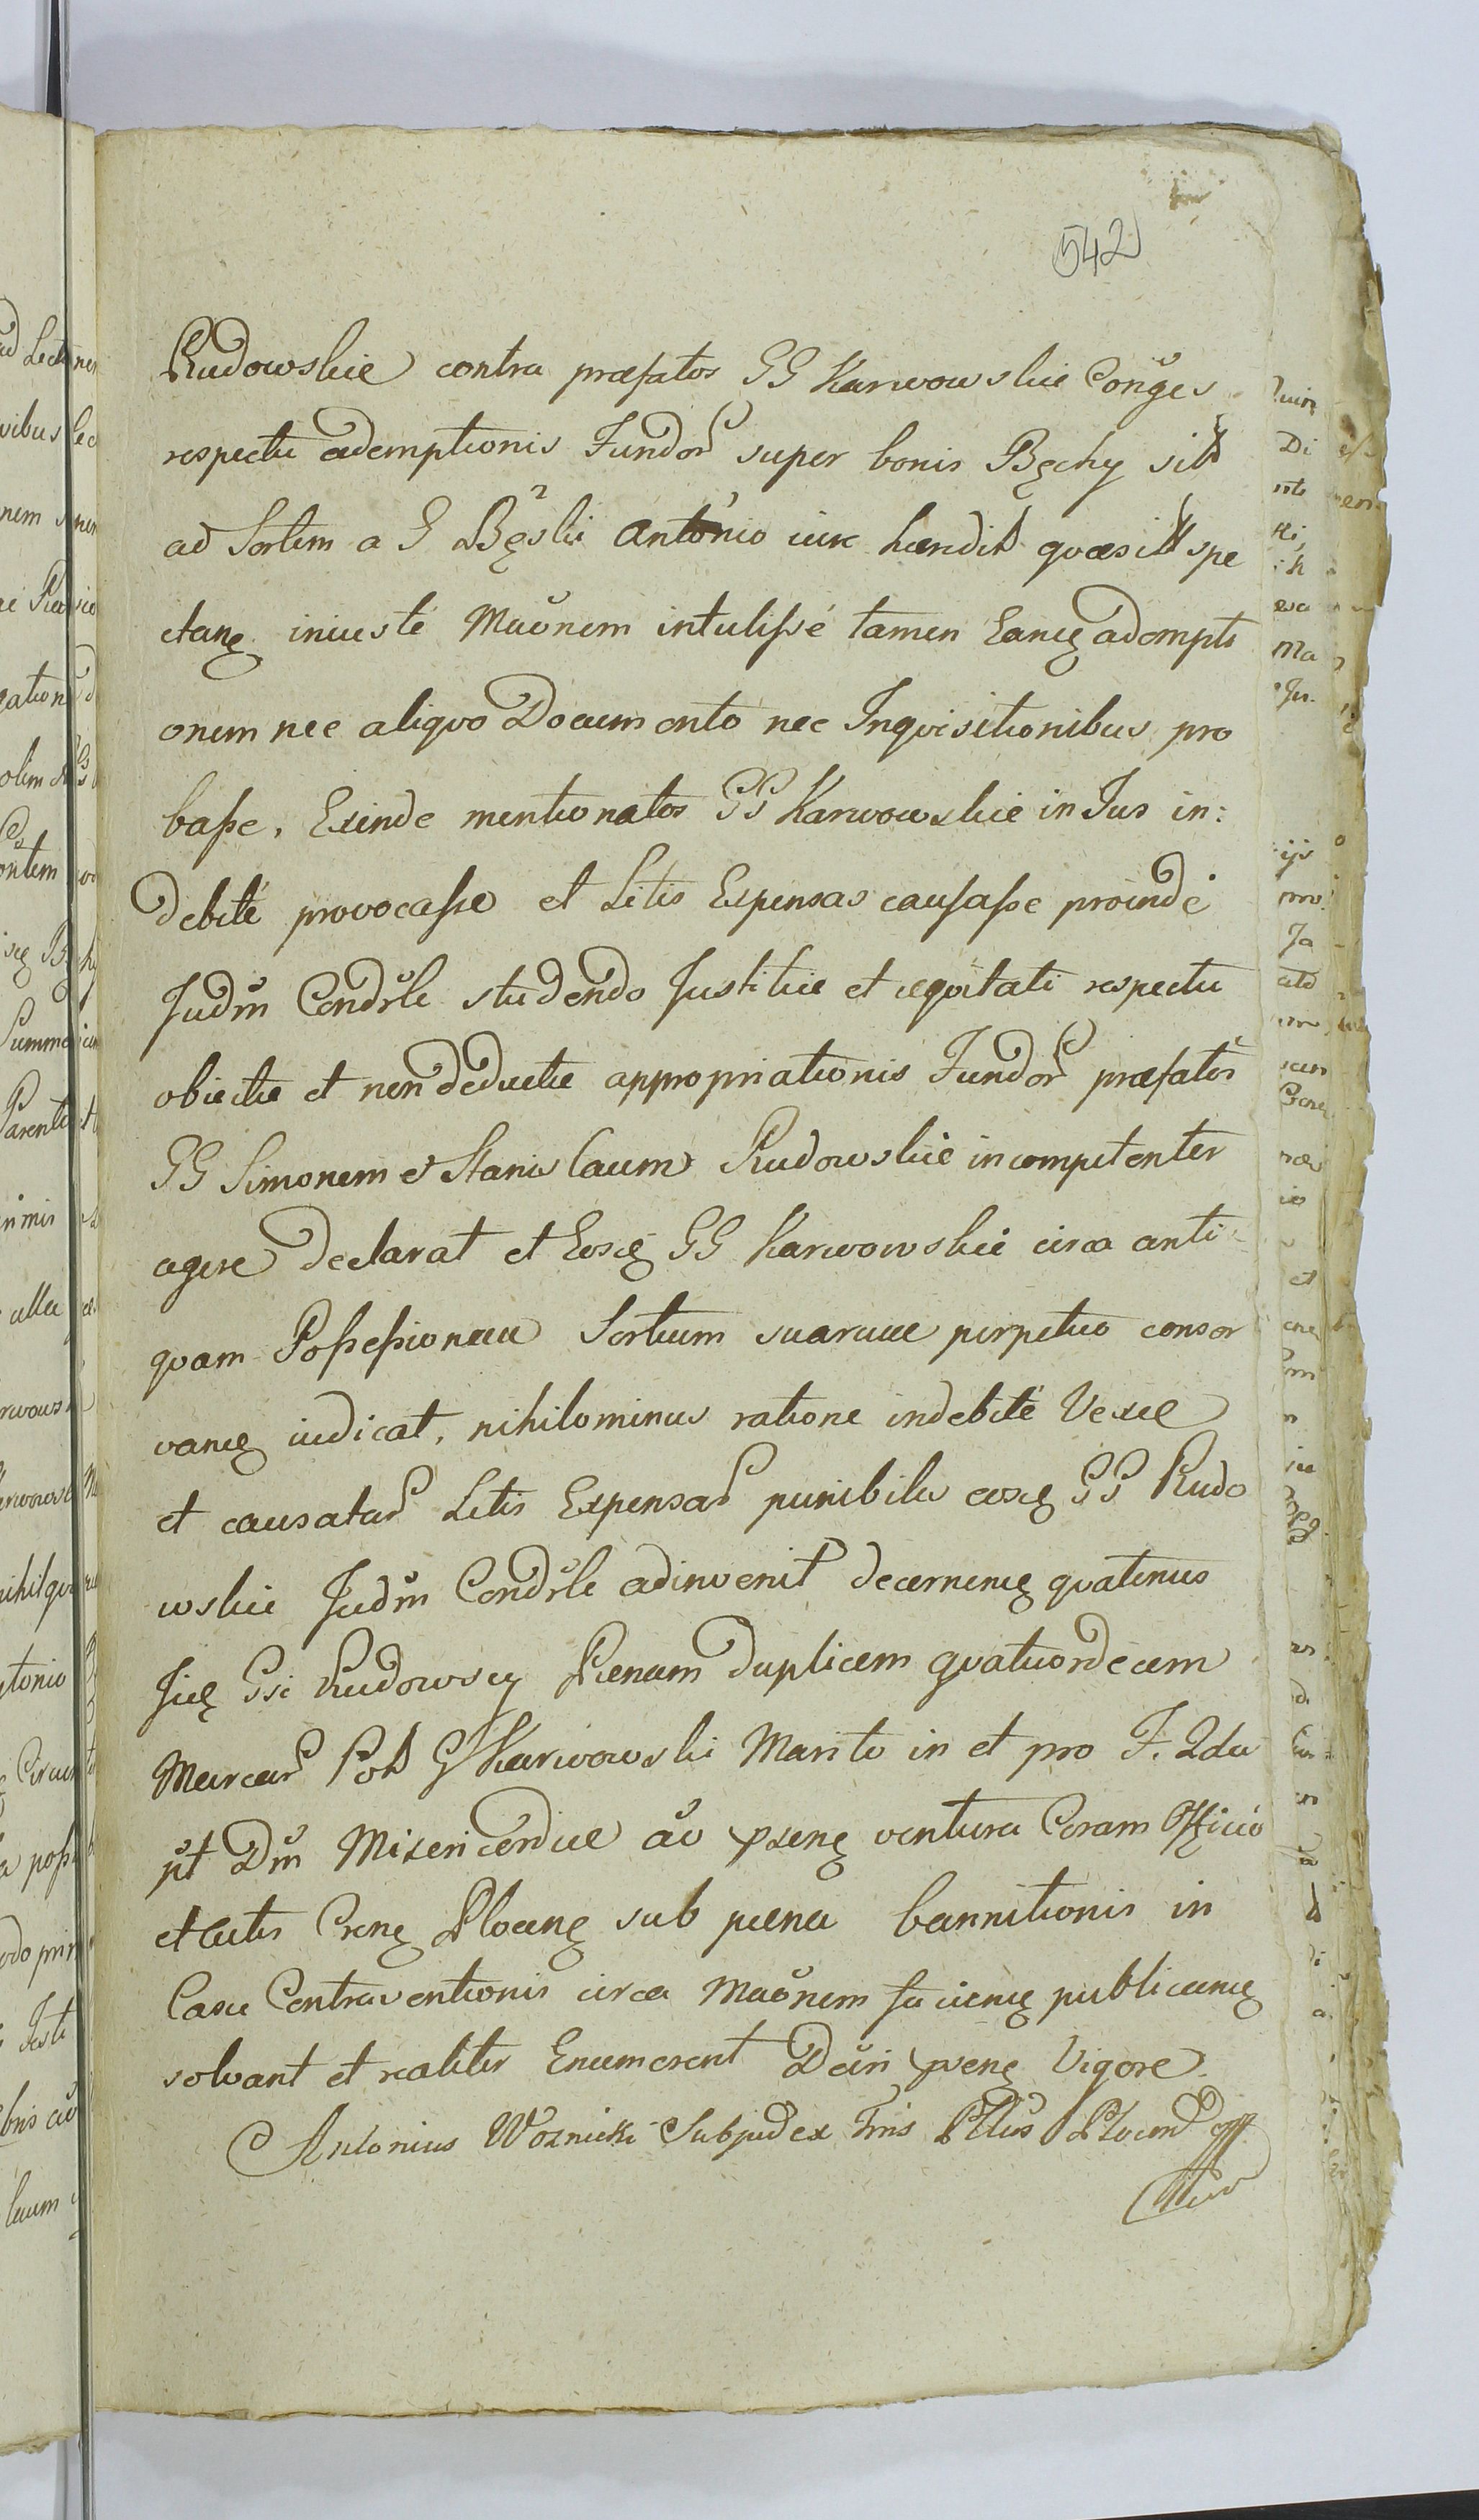 542
Rudowskie contra præfatos GG Karwowskie Conges
respectu ademptionis Fundor super bonis Bęchy sit
ad Sortem a G Bęski Antonio iure hændit quæsit spe
ctanę iniuste Maonem intulisse tamen Eamę adempti
onem nec aliquo Documento nec Inquisitionibus pro
basse, Exinde mentionatos GG Karwowskie in Jus in:
debité provocasse et Litis Expensas causasse proinde
Judm Condrle studendo Justitiæ et æqvitati respectu
obiectæ et non deductæ appropriationis Fundor præfatos
GG Simonem et Stanislaum Rudowskie incompetenter
agere declarat et Eosę GG Karwowskie circa anti
quam Possessionem Sortium suarum perpetuo conser
vanę iudicat, nihilominus ratione indebité Vexæ
et causatar Litis Expensar punibiles eosę GG Rudo
wskie Judm Condrle adinvenit decernenę qvatenus
Jię Gsi Rudowscy Pænam duplicem qvatuordecem
Marcar Pol G Karwowski Marito in et pro F. 2da
pt Dm Misericordiæ ao pxenę ventura Coram Officio
et Actis Crenę Plocenę sub pæna bannitionis in
Casu Contraventionis circa Maonem facienę publicamę
solvant et realiter Enumerent Decri psenę Vigore.
Antonius Woznicki Subjudex Tris Pltus Plocen